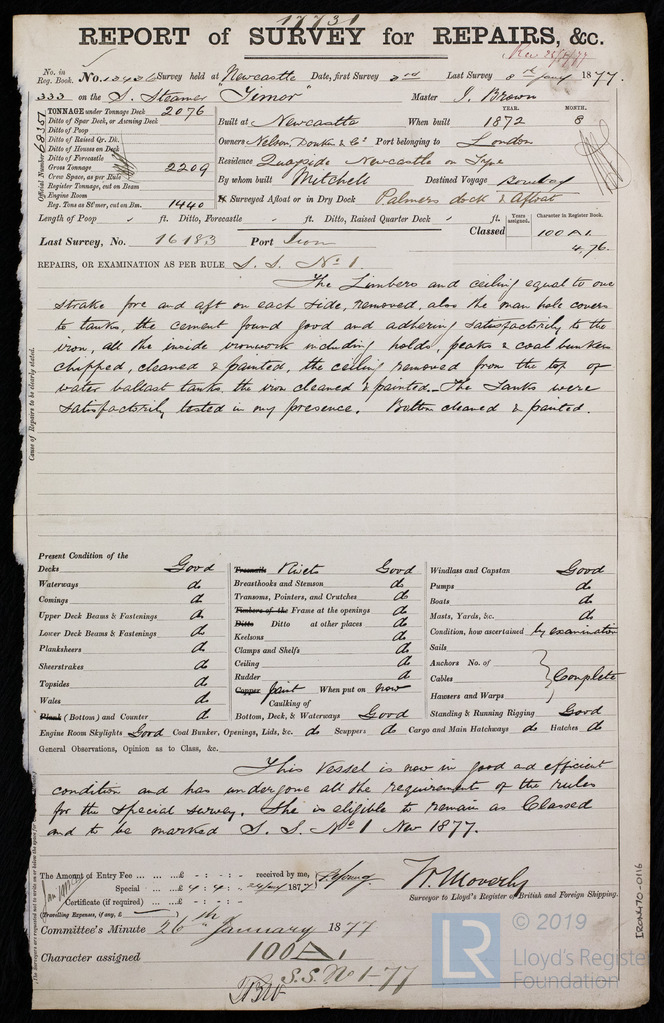 17731
REPORT of SURVEY for REPAIRS, &c.
No. in Reg. Book. No. Survey held at Newcastle Date, first Survey 2nd Last Survey 8th Jany 1877.
333 on the S. Steamer "Timor" Master J. Brown
TONNAGE under Tonnage Deck 2076
Ditto of Spar Deck, or Awning Deck
Ditto of Poop
Ditto of Raised Qr. Dk.
Ditto of Houses on Deck
Ditto of Forecastle
Gross Tonnage 2209
Crew Space, as per Rule
Register Tonnage, cut on Beam
Engine Room
Reg. Tons as St'mer, cut on Bm. 1440
Official Number 68357
YEAR. MONTH.
Built at Newcastle When built 1872 8
Owners Nelson, Donkin & Co Port belonging to London
Residence Quayside Newcastle on Tyne
By whom built Mitchell Destined Voyage Bombay
Surveyed Afloat or in Dry Dock Palmers dock & Afloat
Length of Poop ft. Ditto, Forecastle ft. Ditto, Raised Quarter Deck ft.
Classed Years assigned. Character in Register Book.
100 A1.
4,76.
Last Survey, No. 16183 Port Iron
REPAIRS, OR EXAMINATION AS PER RULE S. S. No 1.
The Limbers and ceiling equal to one
strake fore and aft on each side, removed, also the man hole covers
to tanks, the cement found good and adhering satisfactorily to the
iron, all the inside ironwork including holds, peaks & coal bunkers
chipped, cleaned & painted, the ceiling removed from the top of
water ballast tanks, the iron cleaned & painted_ The Tanks were
satisfactorily tested in my presence. Bottom cleaned & painted.
Cause of Repairs to be clearly stated.
Present Condition of the
Decks Good
Waterways do
Comings do
Upper Deck Beams & Fastenings do
Lower Deck Beams & Fastenings do
Planksheers do
Sheerstrakes do
Topsides do
Wales do
Plank (Bottom) and Counter do
Treenails Rivets Good
Breasthooks and Stemson do
Transoms, Pointers, and Crutches do
Timbers of the Frame at the openings do
Ditto Ditto at other places do
Keelsons do
Clamps and Shelfs do
Ceiling do
Rudder do
Copper paint When put on now
Caulking of
Bottom, Deck, & Waterways Good
Windlass and Capstan Good
Pumps do
Boats do
Masts, Yards, &c. do
Condition, how ascertained by examination
Sails
Anchors No. of
Cables Complete
Hawsers and Warps
Standing & Running Rigging Good
Engine Room Skylights Good Coal Bunker, Openings, Lids, &c. do Scuppers do Cargo and Main Hatchways do Hatches do
General Observations, Opinion as to Class, &c.
This Vessel is now in good and efficient
condition and has undergone all the requirements of the rules
for the special survey. She is eligible to remain as Classed
and to be marked S. S. No 1 Nov 1877.
The Amount of Entry Fee £ - : - : - received by me,
Special £ 4 : 4 : - 1877
Certificate (if required) £ - : - : -
(Travelling Expenses, if any, £
W. Moverly
Surveyor to Lloyd's Register of British and Foreign Shipping.
Committee's Minute 26th January 1877
Character assigned 100 A1.
S.S. No 1-77
IRON470-0116
© 2019
LR Lloyd's Register
Foundation